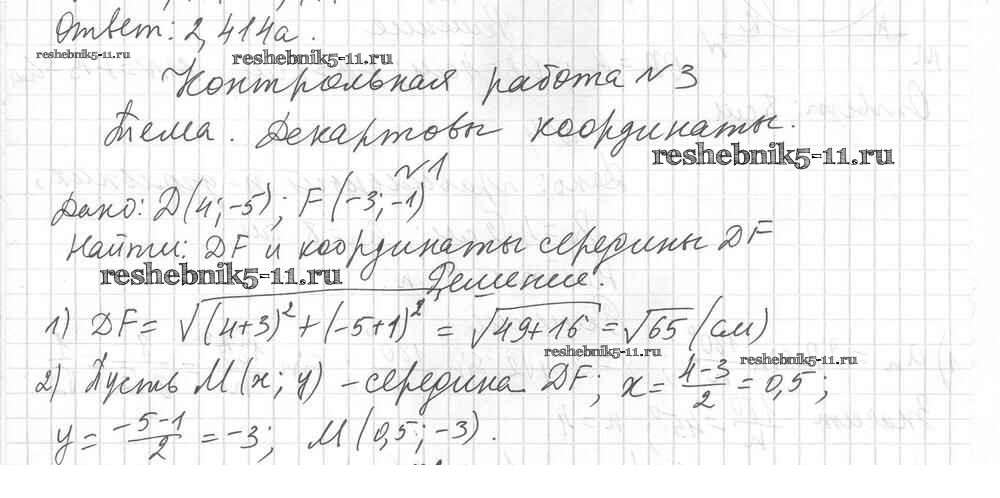 Ответ: 2,414a.
reshebnik5-11.ru reshebnik5-11.ru
Контрольная работа №3
Тема. Декартовы координаты.
reshebnik5-11.ru
№1
Дано: D(4;-5); F(-3;-1)
Найти: DF и координаты середины DF
reshebnik5-11.ru
Решение.
1) DF = √((4+3)²+(-5+1)²) = √(49+16) = √65 (см)
reshebnik5-11.ru reshebnik5-11.ru
2) Пусть M(x; y) – середина DF; x = (4-3)/2 = 0,5;
y = (-5-1)/2 = -3; M(0,5; -3).